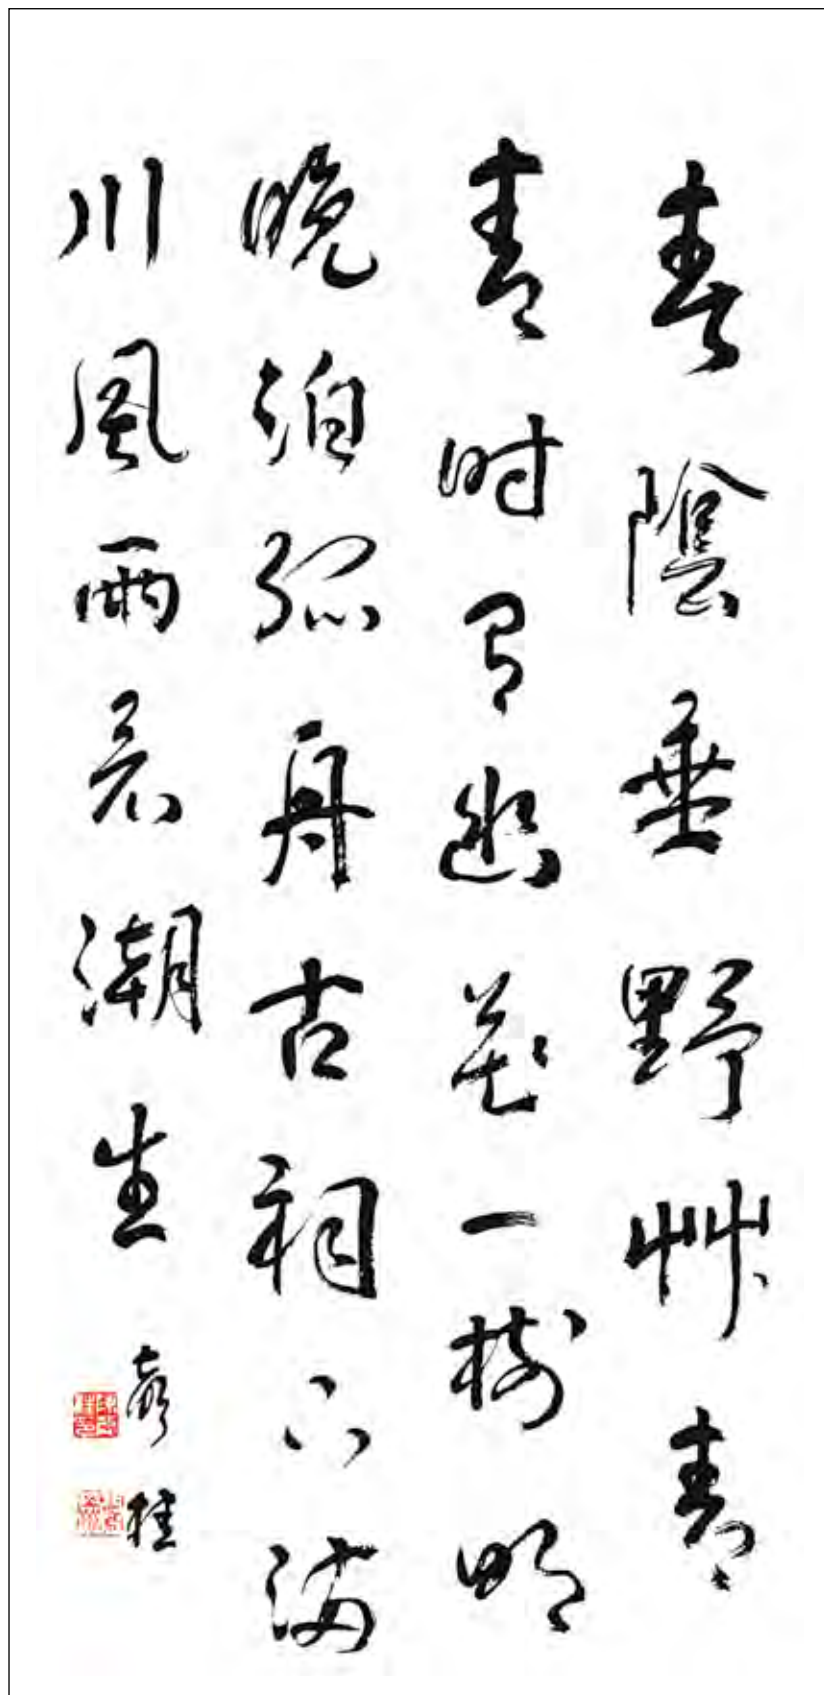 春陰垂野艸青
青时有幽花一樹明
晚泊孤舟古祠下滿
川風雨看潮生
桂